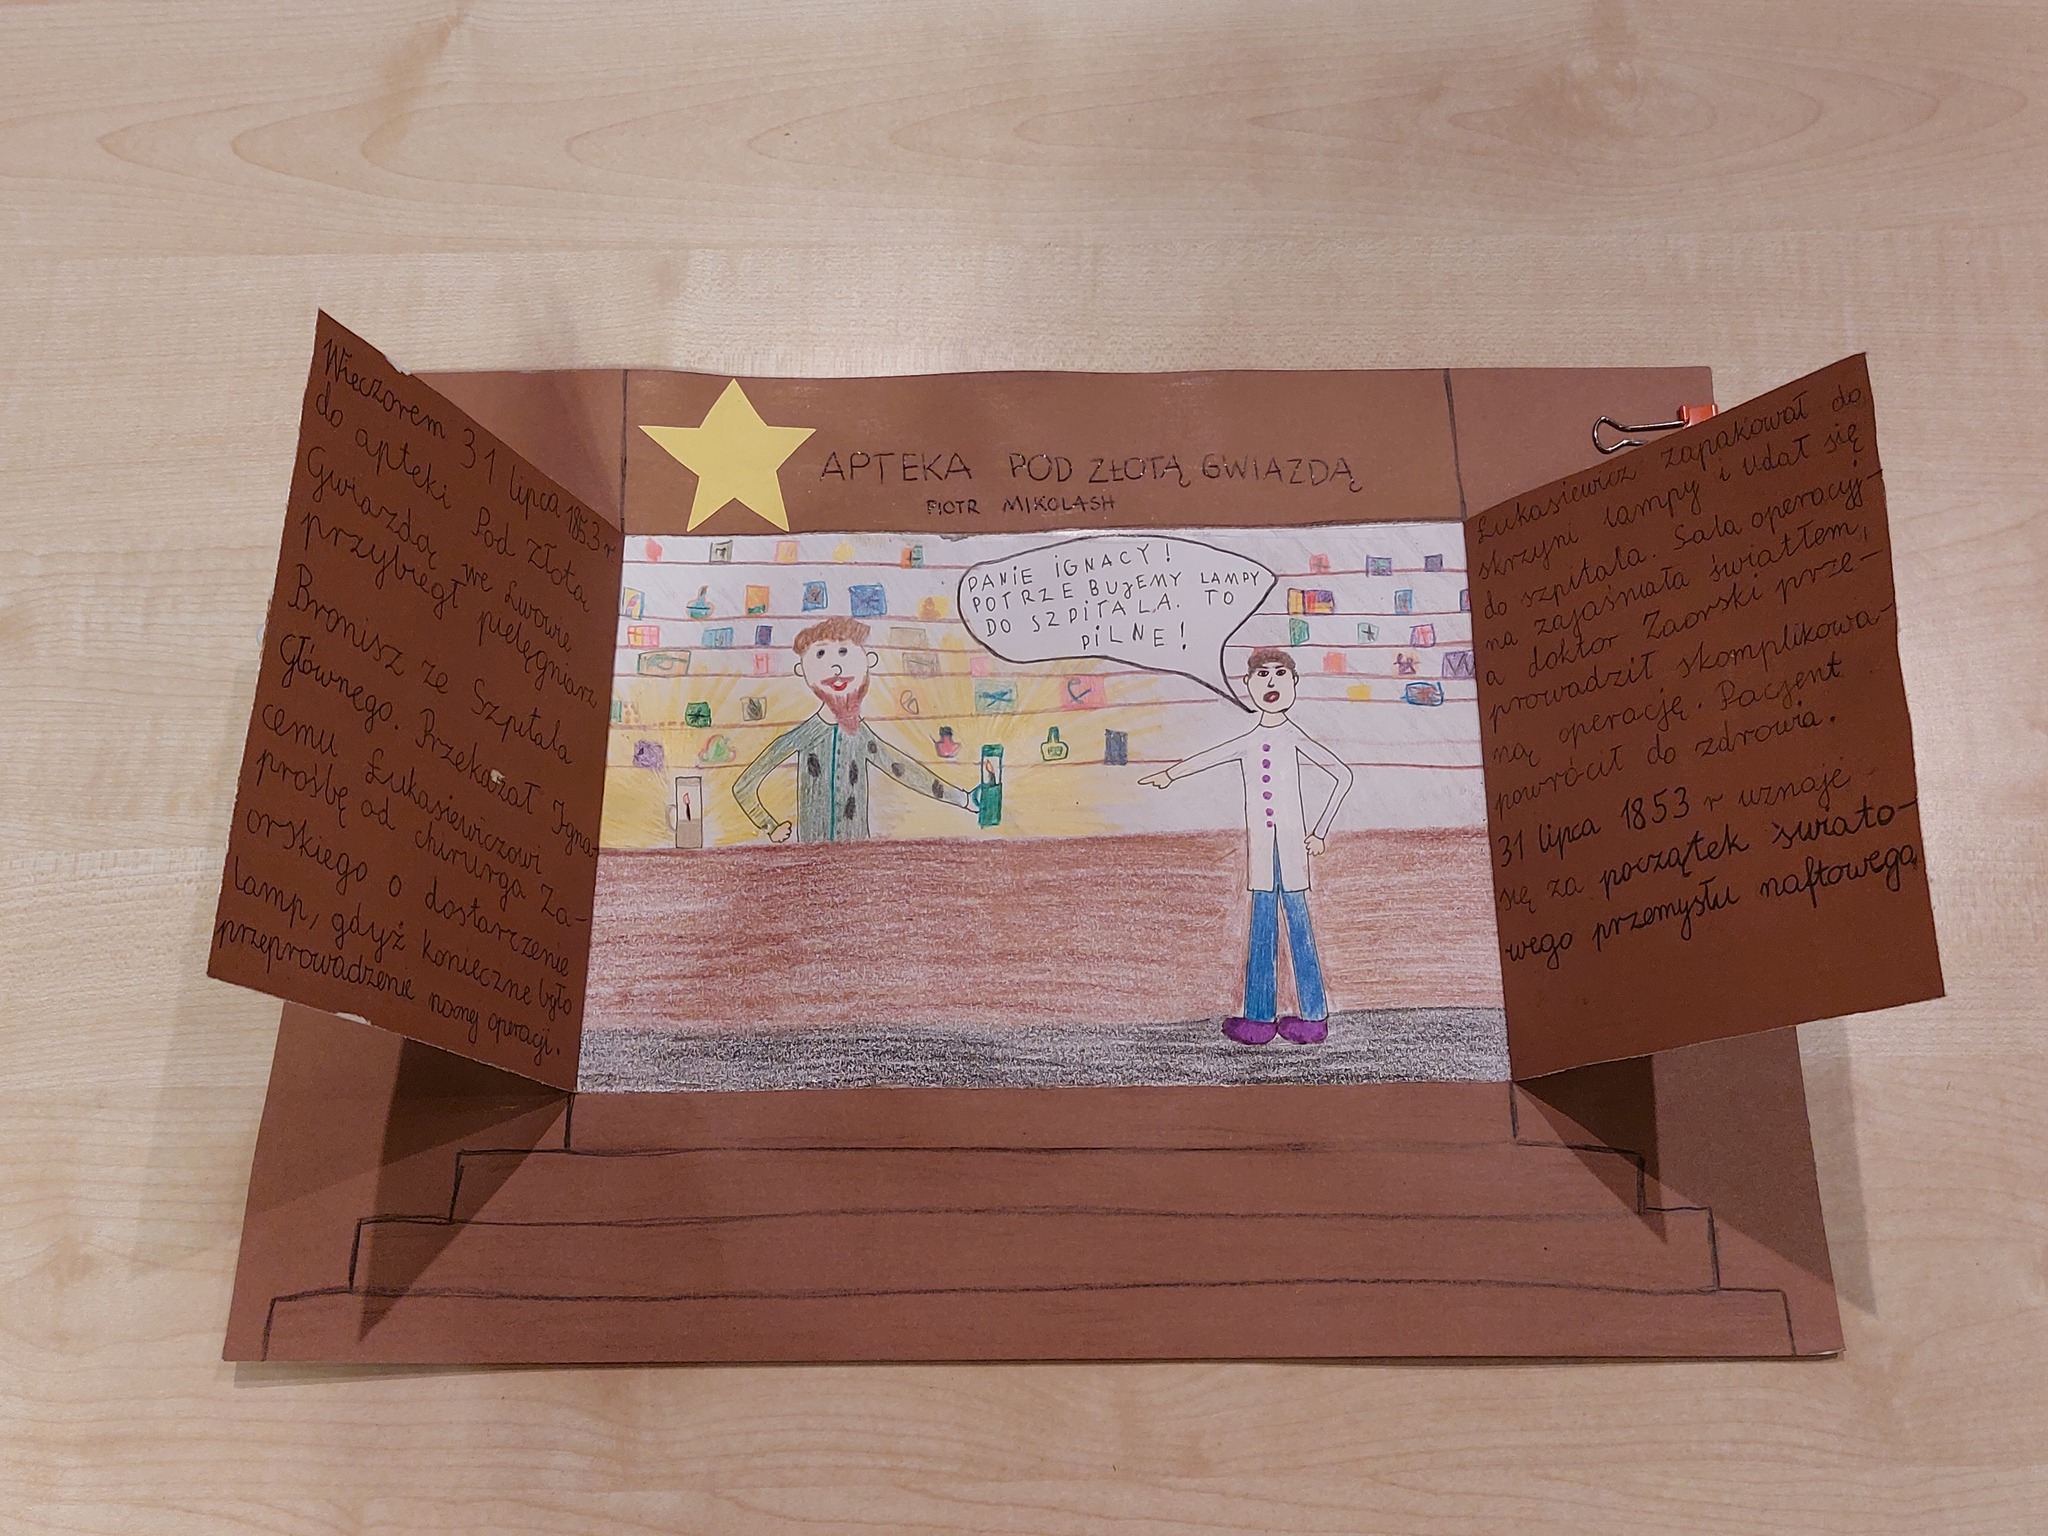 Wieczorem 31 lipca 1853 r
do apteki Pod Złotą
Gwiazdą we Lwowie
przybiegł pielęgniarz
Bronisz ze Szpitala
Głównego. Przekazał Igna-
cemu Łukasiewiczowi
prośbę od chirurga Za-
orskiego o dostarczenie
lamp, gdyż konieczne było
przeprowadzenie nocnej operacji.
APTEKA POD ZŁOTĄ GWIAZDĄ
PIOTR MIKOLASH
PANIE IGNACY!
POTRZEBUJEMY LAMPY
DO SZPITALA. TO
PILNE!
Łukasiewicz zapakował do
skrzyni lampy i udał się
do szpitala. Sala operacyj-
na zajaśniała światłem,
a doktor Zaorski prze-
prowadził skomplikowa-
ną operację. Pacjent
powrócił do zdrowia.
31 lipca 1853 r uznaje
się za początek świato-
wego przemysłu naftowego